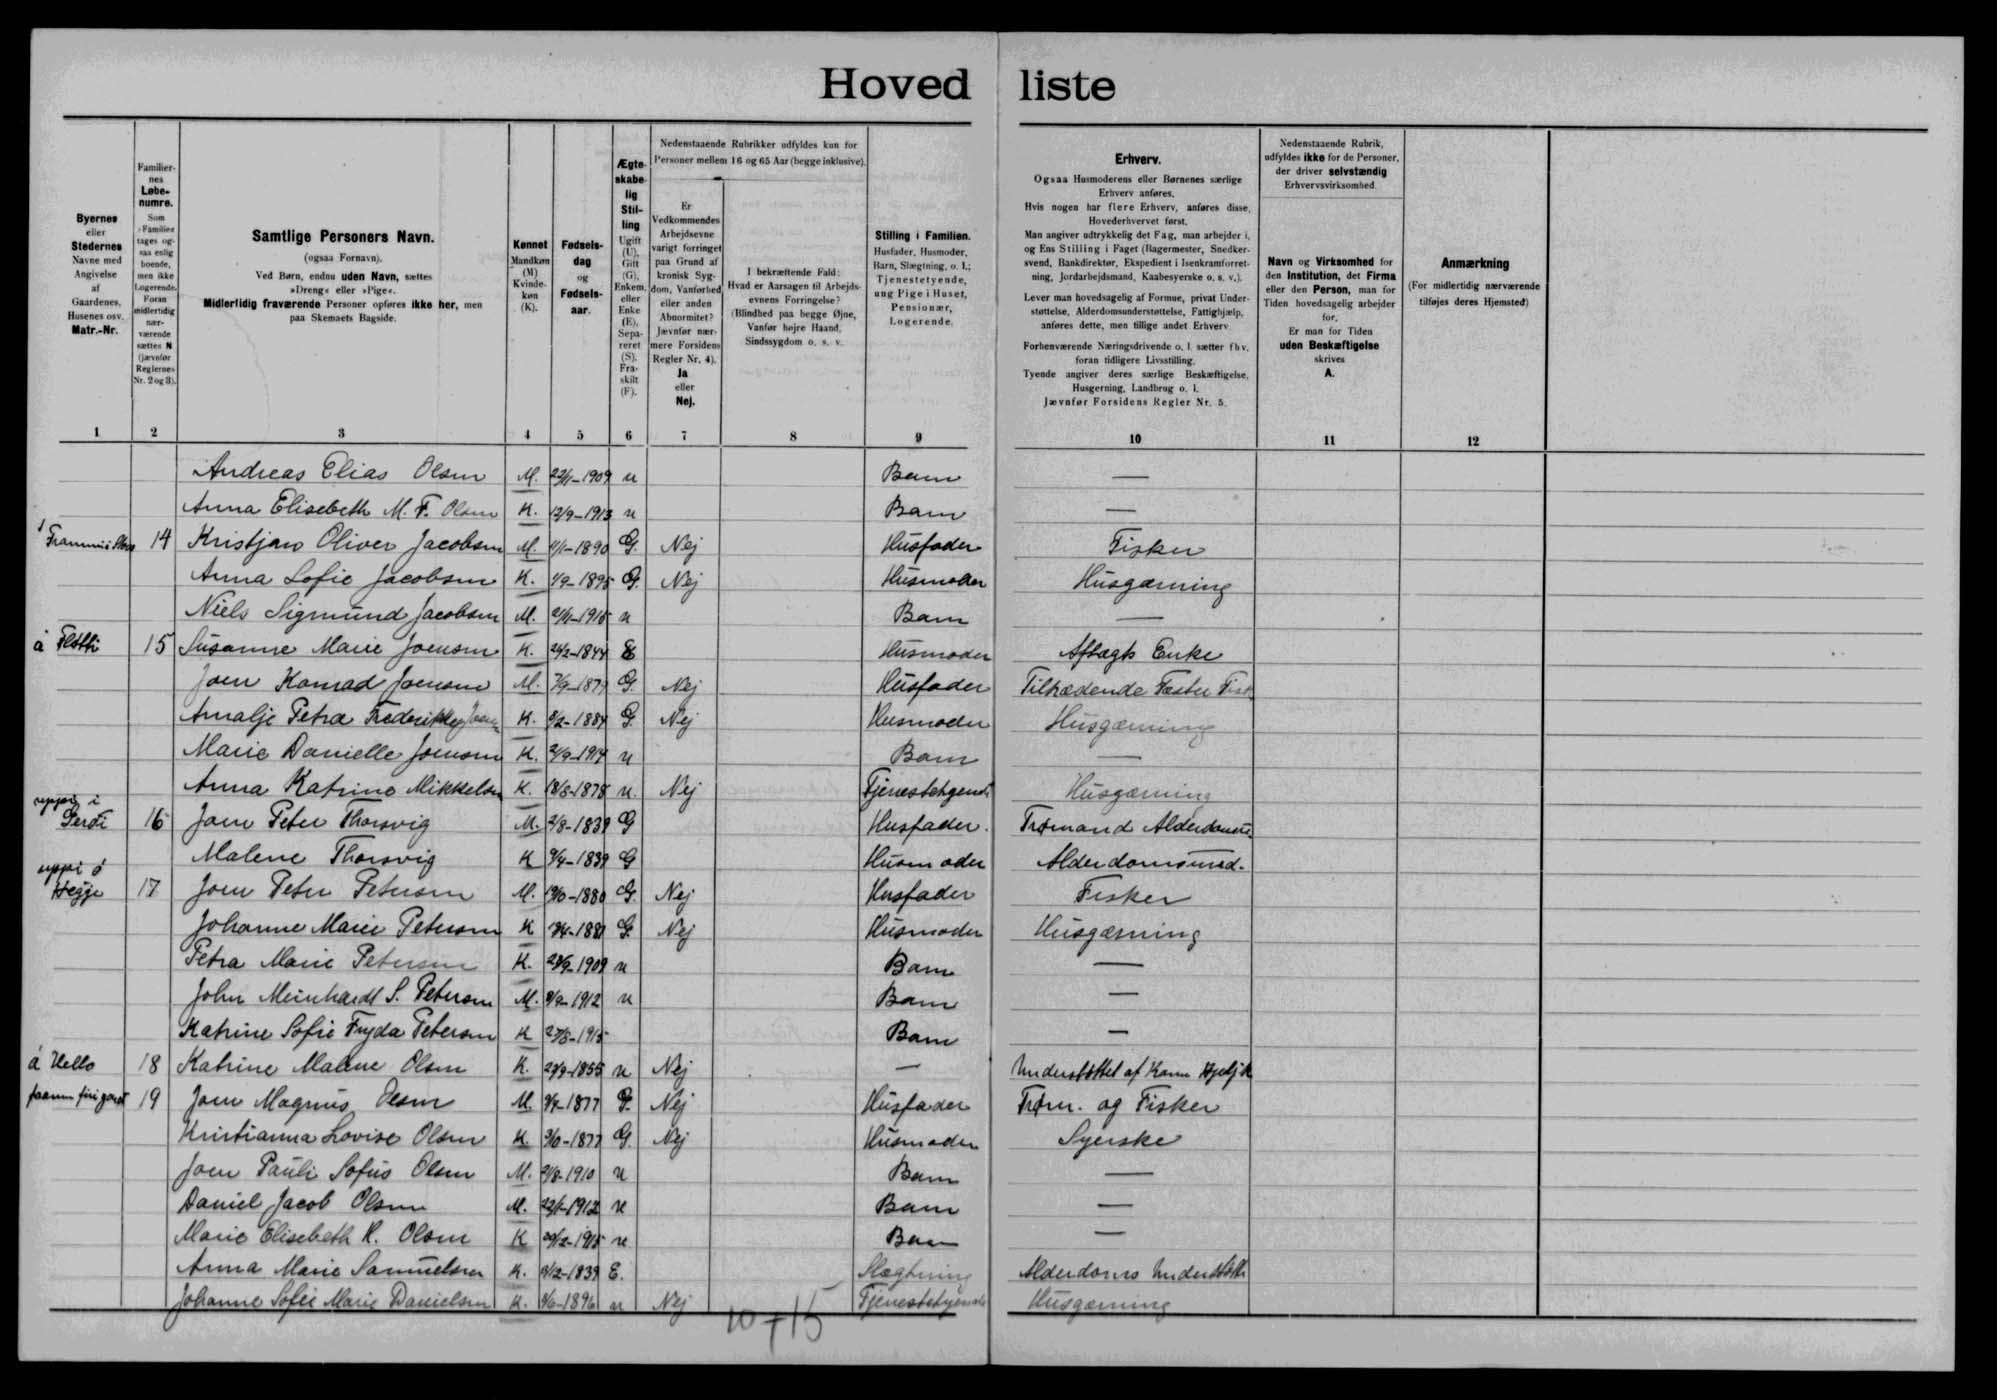 Hoved liste
Byernes
eller
Stedernes
Navne med
Angivelse
af
Gaardenes,
Husenes osv.
Matr.-Nr.
Familier-
nes
Løbe-
numre.
Som
»Familie«
tages og-
saa enlig
boende,
men ikke
Logerende.
Foran
midlertidig
nær-
værende
sættes N
(jævnfør
Reglernes
Nr. 2 og 3).
Samtlige Personers Navn.
(ogsaa Fornavn).
Ved Børn, endnu uden Navn, sættes
»Dreng« eller »Pige«.
Midlertidig fraværende Personer opføres ikke her, men
paa Skemaets Bagside.
Kønnet
Mandkøn
(M)
Kvinde-
køn
(K).
Fødsels-
dag
og
Fødsels-
aar.
Ægte-
skabe-
lig
Stil-
ling
Ugift
(U),
Gift
(G),
Enkem.
eller
Enke
(E),
Sepa-
reret
(S),
Fra-
skilt
(F).
Nedenstaaende Rubrikker udfyldes kun for
Personer mellem 16 og 65 Aar (begge inklusive).
Er
Vedkommendes
Arbejdsevne
varigt forringet
paa Grund af
kronisk Syg-
dom, Vanførhed
eller anden
Abnormitet?
Jævnfør nær-
mere Forsidens
Regler Nr. 4).
Ja
eller
Nej.
I bekræftende Fald:
Hvad er Aarsagen til Arbejds-
evnens Forringelse?
(Blindhed paa begge Øjne,
Vanfør højre Haand,
Sindssygdom o. s. v.
Stilling i Familien.
Husfader, Husmoder,
Barn, Slægtning, o. l.;
Tjenestetyende,
ung Pige i Huset,
Pensionær,
Logerende.
Erhverv.
Ogsaa Husmoderens eller Børnenes særlige
Erhverv anføres.
Hvis nogen har flere Erhverv, anføres disse,
Hovederhvervet først.
Man angiver udtrykkelig det Fag, man arbejder i,
og Ens Stilling i Faget (Bagermester, Snedker-
svend, Bankdirektør, Ekspedient i Isenkramforret-
ning, Jordarbejdsmand, Kaabesyerske o. s. v.).
Lever man hovedsagelig af Formue, privat Under-
støttelse, Alderdomsunderstøttelse, Fattighjælp,
anføres dette, men tillige andet Erhverv.
Forhenværende Næringsdrivende o. l. sætter fhv.
foran tidligere Livsstilling.
Tyende angiver deres særlige Beskæftigelse,
Husgerning, Landbrug o. l.
Jævnfør Forsidens Regler Nr. 5.
Nedenstaaende Rubrik,
udfyldes ikke for de Personer,
der driver selvstændig
Erhvervsvirksomhed.
Navn og Virksomhed for
den Institution, det Firma
eller den Person, man for
Tiden hovedsagelig arbejder
for.
Er man for Tiden
uden Beskæftigelse
skrives
A.
Anmærkning
(For midlertidig nærværende
tilføjes deres Hjemsted)
1 2 3 4 5 6 7 8 9 10 11 12
Andreas Elias Olsen M. 22/11-1909 u Barn —
Anna Elisebeth M. F. Olsen K. 12/9-1913 u Barn —
14 Kristjan Oliver Jacobsen M. 1/1-1890 G. Nej Husfader Fisker
Anna Sofie Jacobsen K. 1/9-1895 G. Nej Husmoder Husgærning
Niels Sigmund Jacobsen M. 21/11-1915 u Barn —
á Fløtti 15 Susanne Marie Joensen K. 24/2-1844 E Husmoder Aftægts Enke
Joen Konrad Joensen M. 7/9-1879 G. Nej Husfader Tiltrædende Fæster
Amalje Petra Frederikke K. 8/2-1884 G. Nej Husmoder Husgærning
Marie Danielle Joensen K. 2/9-1914 u Barn —
Anna Katrine Mikkelsen K. 18/8-1878 u. Nej Tjenestetyende Husgærning
uppi i
Gerði 16 Joen Peter Thorsvig M. 2/8-1839 G Husfader. Trømand
Malene Thorsvig K 9/4-1839 G Husmoder Alderdomsund.
uppi á
Heggje 17 Joen Peter Petersen M. 19/10-1880 G. Nej Husfader Fisker
Johanne Marie Petersen K 7/4-1881 G. Nej Husmoder Husgærning
Petra Marie Petersen K. 23/9-1909 u Barn —
John Meinhardt S. Petersen M. 9/9-1912 u Barn —
Katrine Sofie Fryda Petersen K 27/8-1915 Barn —
á Hello 18 Katrine Malene Olsen K. 29/9-1855 u Nej — Understøttet af
19 Joen Magnus Olsen M 9/9-1877 G. Nej Husfader Trøm. og Fisker
Kristianna Lovise Olsen K. 3/10-1877 G. Nej Husmoder Syerske
Joen Pauli Sofus Olsen M. 2/8-1910 u Barn —
Daniel Jacob Olsen M. 22/1-1912 u Barn —
Marie Elisebeth K. Olsen K 20/2-1915 u Barn —
Anna Marie Samuelsen K. 2/12-1839 E. Slægtning Alderdoms
Johanne Sofie Marie Danielsen K. 4/6-1896 u Nej Tjenestetyende Husgærning
10+15